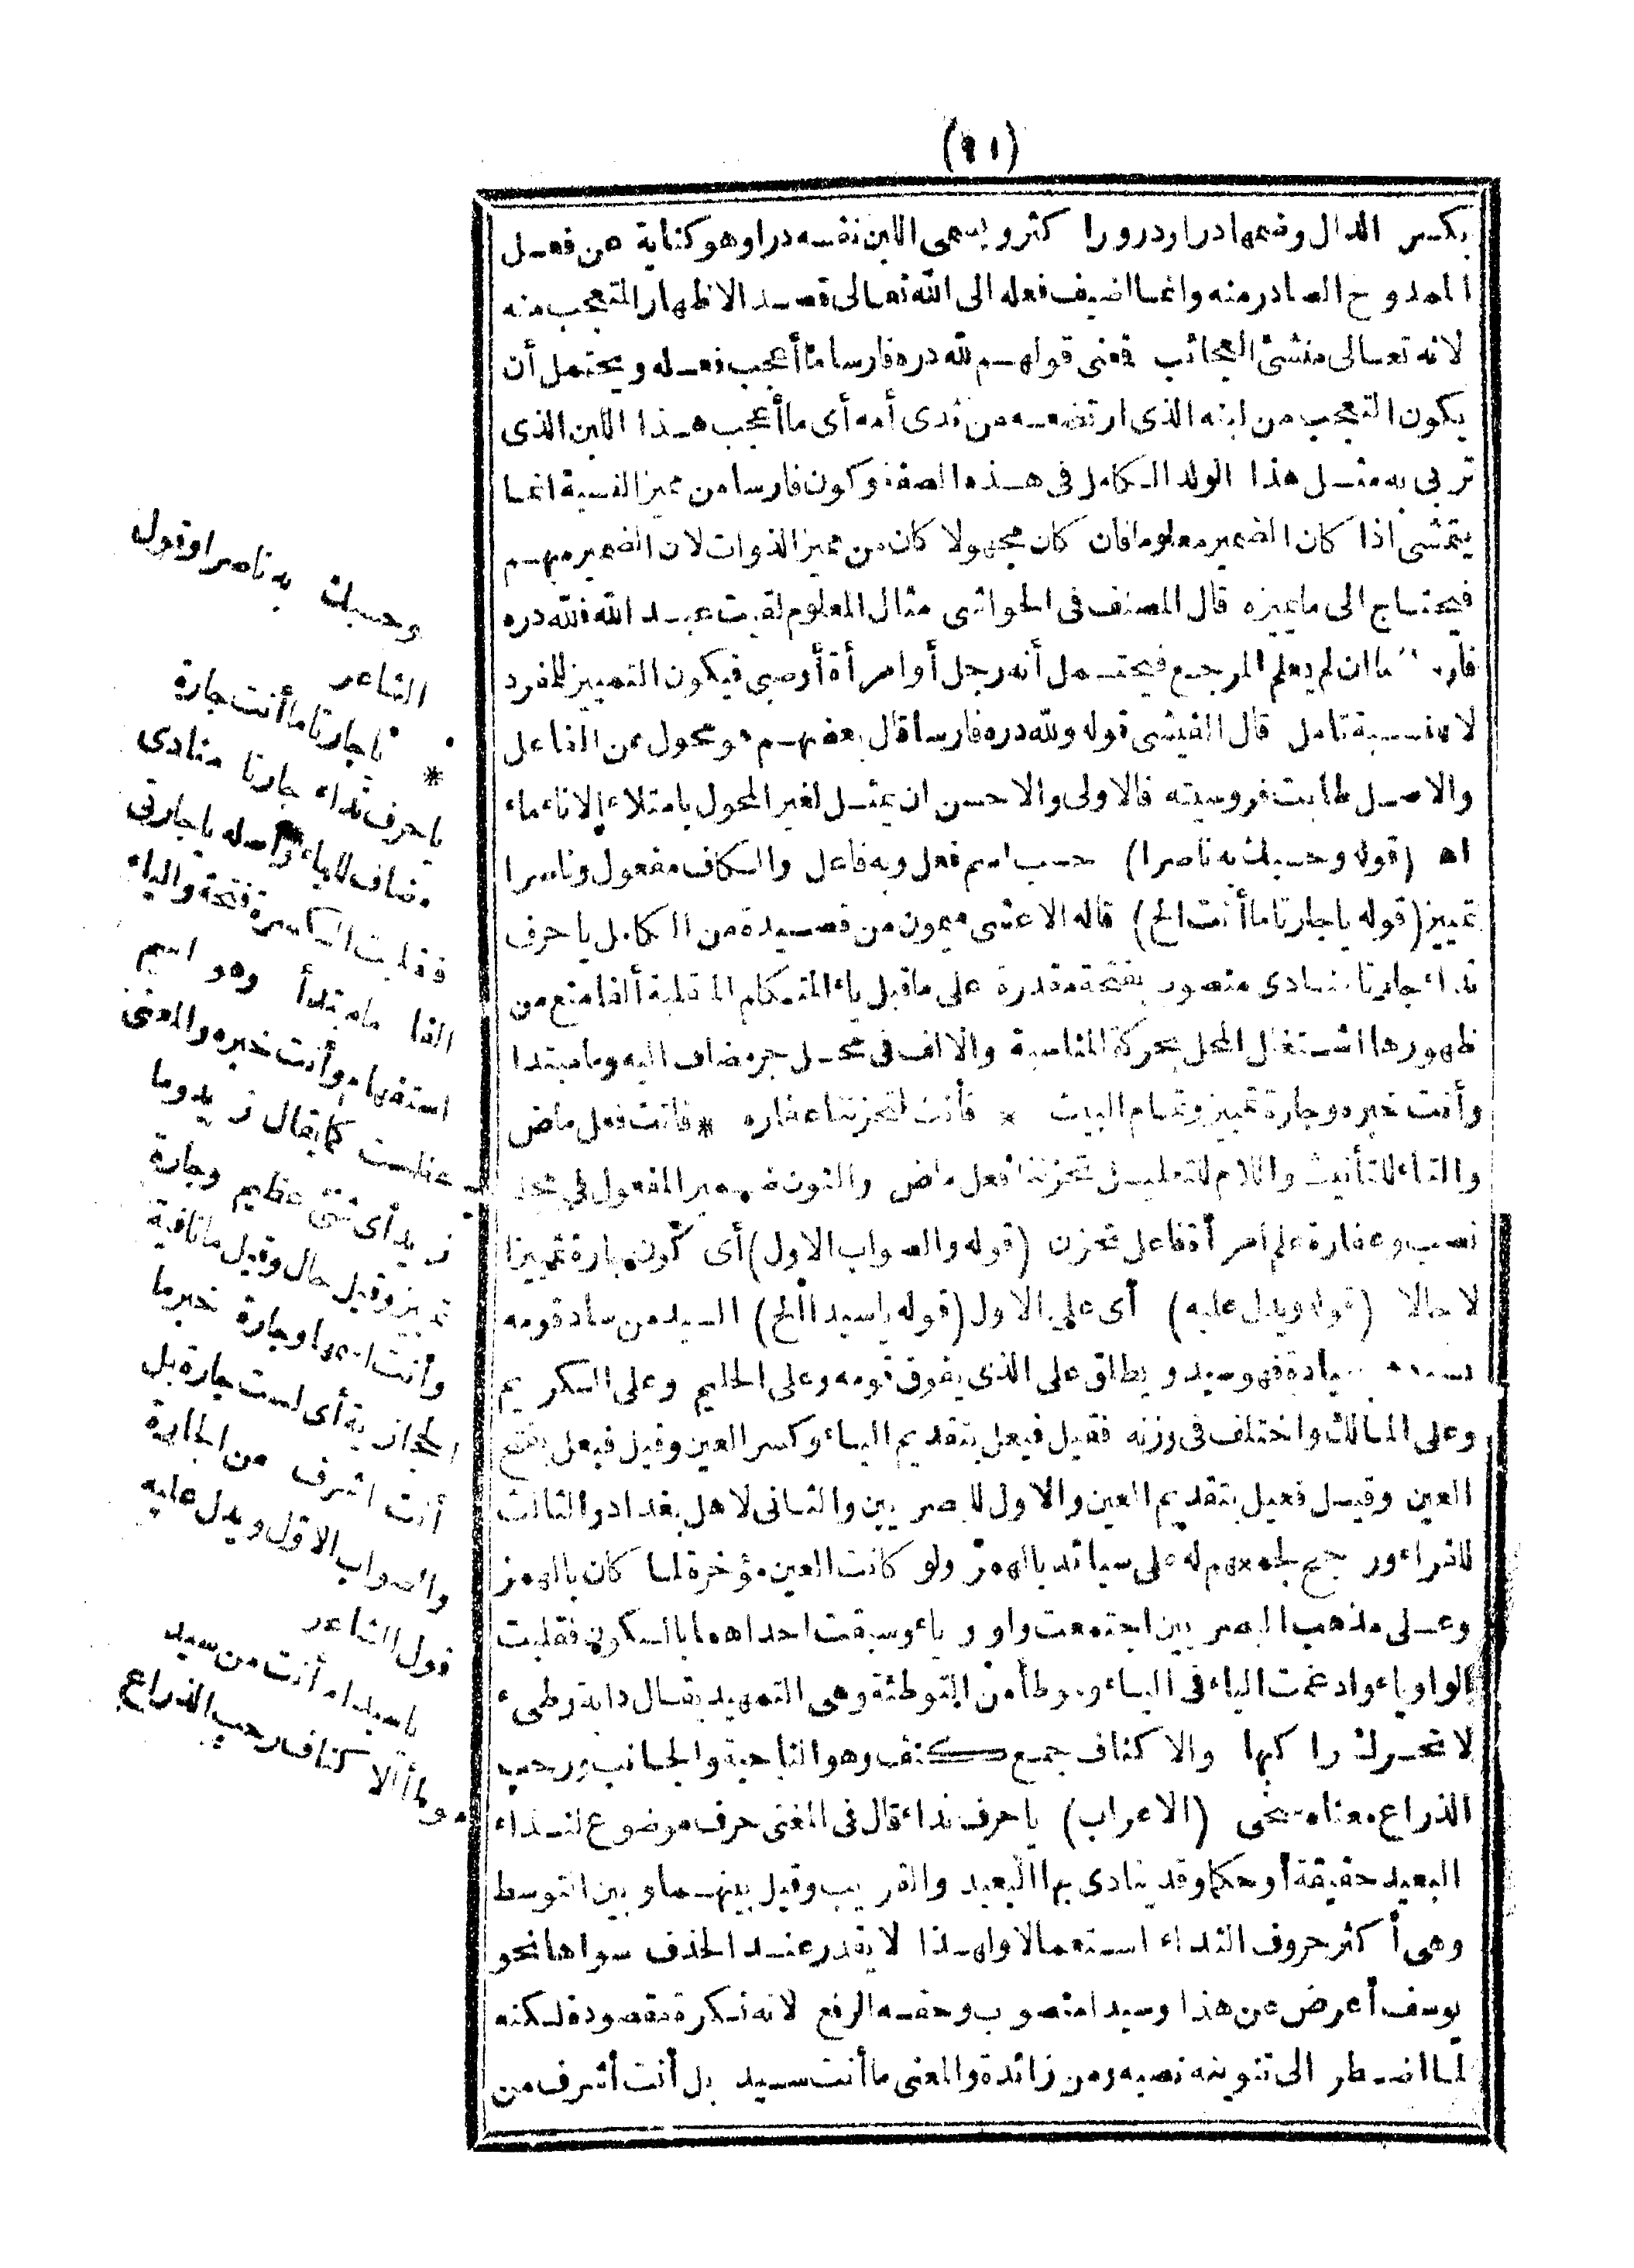 (٩١)
بكسر الدال وضمها درا ودرورا كثر ويسمى اللبن نفسه درا وهو كناية عن فعل
الممدوح الصادر منه وانما اضيف فعله الى الله تعالى قصد الاظهار المتعجب منه
لانه تعالى منشئ العجائب فمعنى قولهم لله دره فارسا ما أعجب فعله ويحتمل أن
يكون التعجب من لبنه الذى ارتضعه من ثدى أمه أى ما أعجب هذا اللبن الذى
تربى به مثل هذا الولد الكامل فى هذه الصفة وكون فارسا من مميز النسبة انما
يتمشى اذا كان الضمير معلوما فان كان مجهولا كان من مميز الذوات لان الضمير مبهم
فيحتاج الى ما يميزه قال المصنف فى الحواشى مثال المعلوم لقيت عبد الله فلله دره
ما ان لم يعلم المرجع فيحتمل أنه رجل أو امرأة أو صبى فيكون التمييز للمفرد
لا للنسبة تامل قال الفيشى قوله ولله دره فارسا قال بعضهم هو محول عن الفاعل
والاصل طابت فروسيته فالاولى والاحسن ان يمثل لغير المحول بامتلاء الاناء ماء
اه (قوله وحسبك به ناصرا) حسب اسم فعل وبه فاعل والكاف مفعول وناصرا
تمييز (قوله يا جارتا ما أنت الخ) قاله الاعشى ميمون من قصيدة من الكامل يا حرف
نداء جارتا منادى منصوب بفتحة مقدرة على ما قبل ياء المتكلم المنقلبة ألفا منع من
ظهورها اشتغال المحل بحركة المناسبة والالف فى محل جر مضاف اليه وما مبتدا
وأنت خبره وجارة تمييز وتمام البيت * فأنت لتحزننا عفاره * فانت فعل ماض
والتاء للتأنيث واللام للتعليل تحزننا فعل ماض والنون ضمير المفعول فى محل
نصب وعفارة علم امرأة فاعل تحزن (قوله والصواب الاول) أى كون جارة تمييزا
لا حالا (قوله ويدل عليه) أى على الاول (قوله يا سيدا الخ) السيد من ساد قومه
سيادة فهو سيد ويطلق على الذى يفوق قومه وعلى الحليم وعلى الكريم
وعلى المالك واختلف فى وزنه فقيل فيعل بتقديم الياء وكسر العين وقيل فيعل بفتح
العين وقيل فعيل بتقديم العين والاول للبصريين والثانى لاهل بغداد والثالث
للفراء ورجح لجمعهم له على سيائد بالهمز ولو كانت العين مؤخرة لما كان بالهمز
وعلى مذهب البصريين اجتمعت واو وياء وسبقت احداهما بالسكون فقلبت
الواو ياء وادغمت الياء فى الياء وموطأ من التوطئة وهى التمهيد يقال دابة وطىء
لا تحرك راكبها والاكناف جمع كنف وهو الناحية والجانب ورحب
الذراع معناه سخى (الاعراب) يا حرف نداء قال فى المغنى حرف موضوع لنداء
البعيد حقيقة أو حكما وقد ينادى بها البعيد والقريب وقيل بينهما وبين المتوسط
وهى أكثر حروف النداء استعمالا ولهذا لا يقدر عند الحذف سواها نحو
يوسف أعرض عن هذا وسيدا منصوب وحقه الرفع لانه نكرة مقصودة لكنه
لما اضطر الى تنوينه نصبه ومن زائدة والمعنى ما أنت سيد بل أنت أشرف من
وحسبك به ناصرا وقول
الشاعر
* يا جارتا ما أنت جارة
يا حرف نداء جارتا منادى
مضاف للياء وأصله يا جارتى
فقلبت الكسرة فتحة والياء
الفا ما مبتدأ وهو اسم
استفهام وأنت خبره والمعنى
عظمت كما يقال زيد وما
زيد أى شئ عظيم وجارة
تمييز وقيل حال وقيل ما نافية
وأنت اسمها وجارة خبر ما
الحجازية أى لست جارة بل
أنت اشرف من الجارة
والصواب الاول ويدل عليه
قول الشاعر
يا سيدا ما أنت من سيد
موطأ الاكناف رحب الذراع